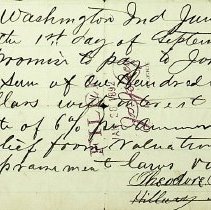 Washington Ind Jun
the 1st day of Septem
promise to pay to Jo
sum of One Hundred
llars with interest
te of 6% per annum
lief from valuation
praisement laws
Theodore
Hillary